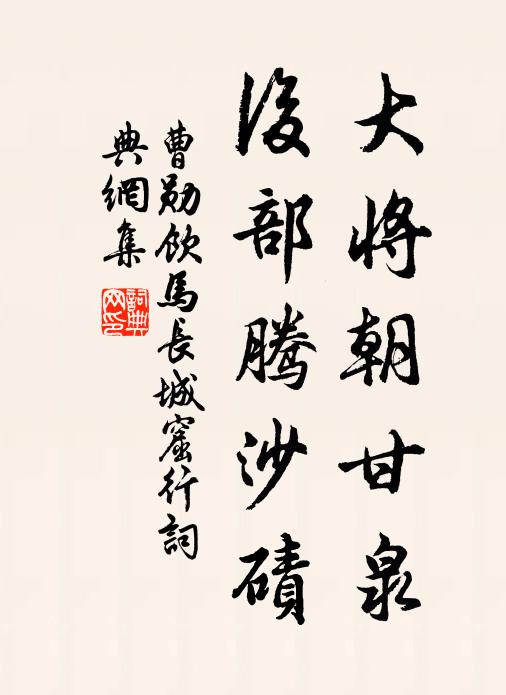 大將朝甘泉
後部騰沙磧
曹勛飲馬長城窟行詞
典網集
詞典網印